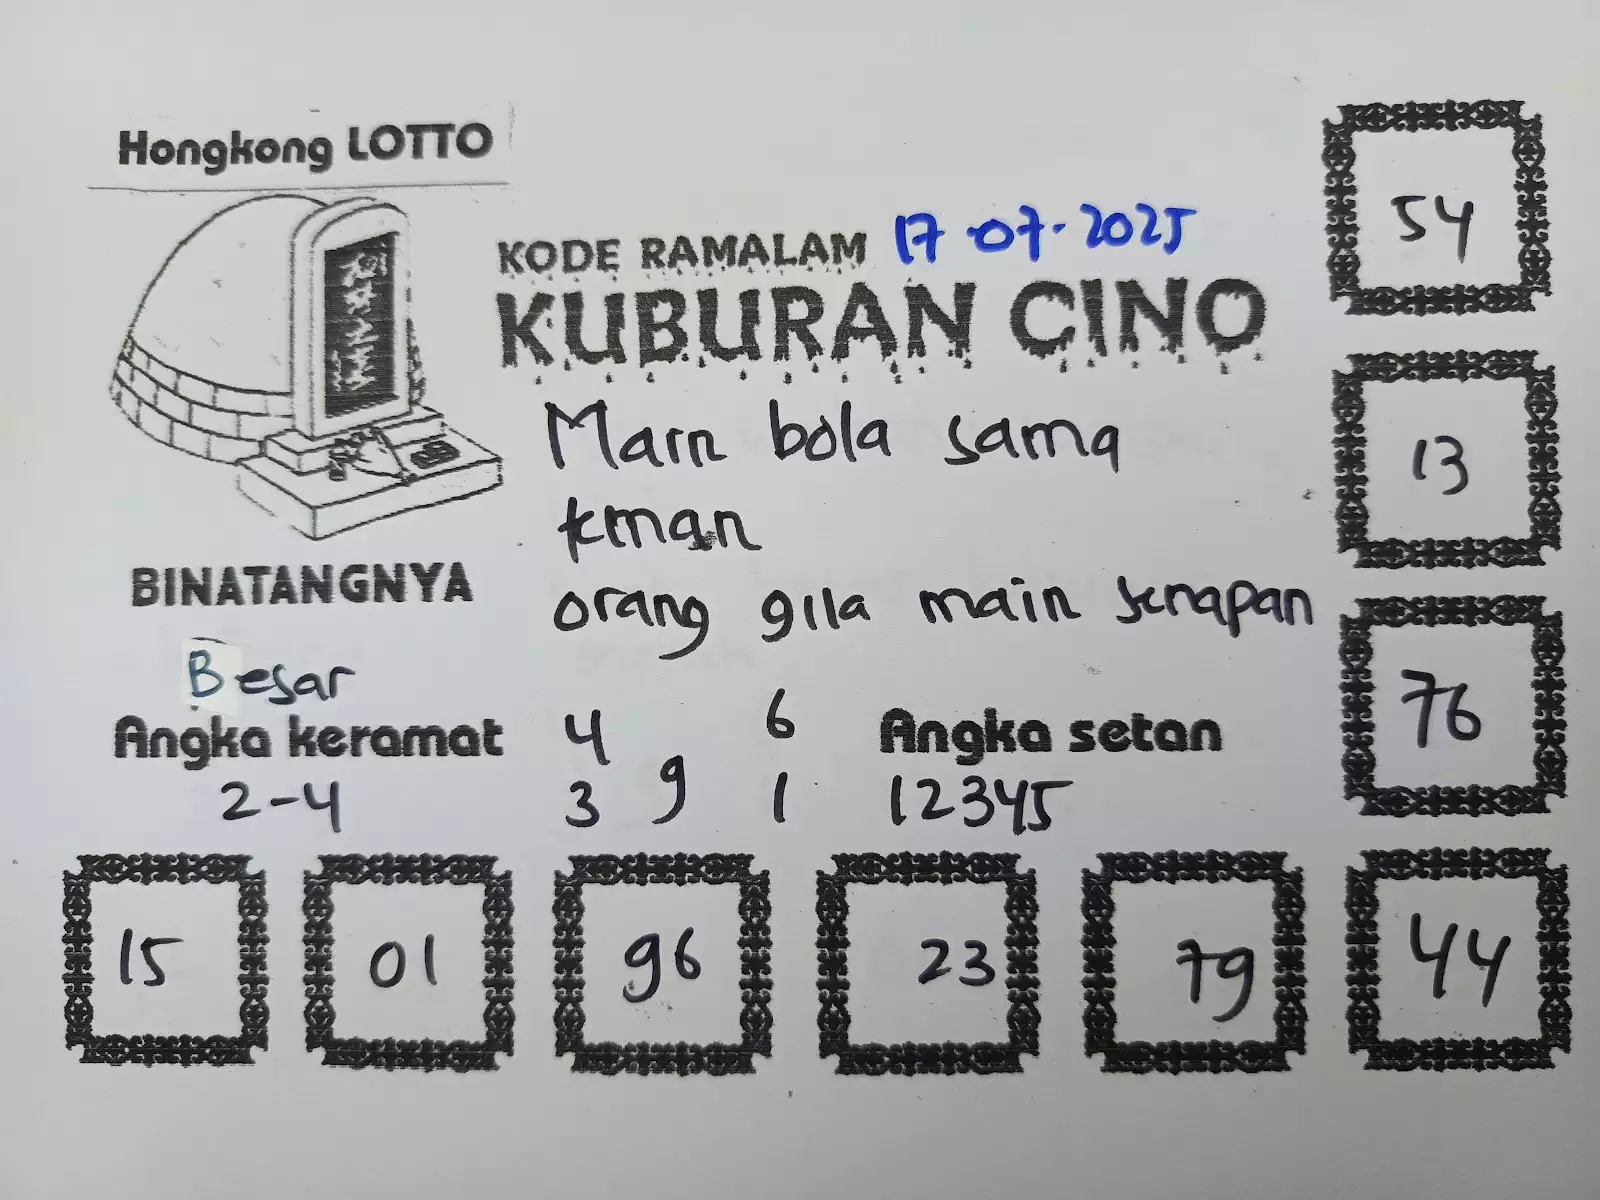 Hongkong LOTTO
KODE RAMALAM 17-07-2025
KUBURAN CINO
Main bola sama
teman
orang gila main senapan
BINATANGNYA
Besar
Angka keramat
2-4
4 6
9
3 1
Angka setan
12345
54
13
76
15 01 96 23 79 44